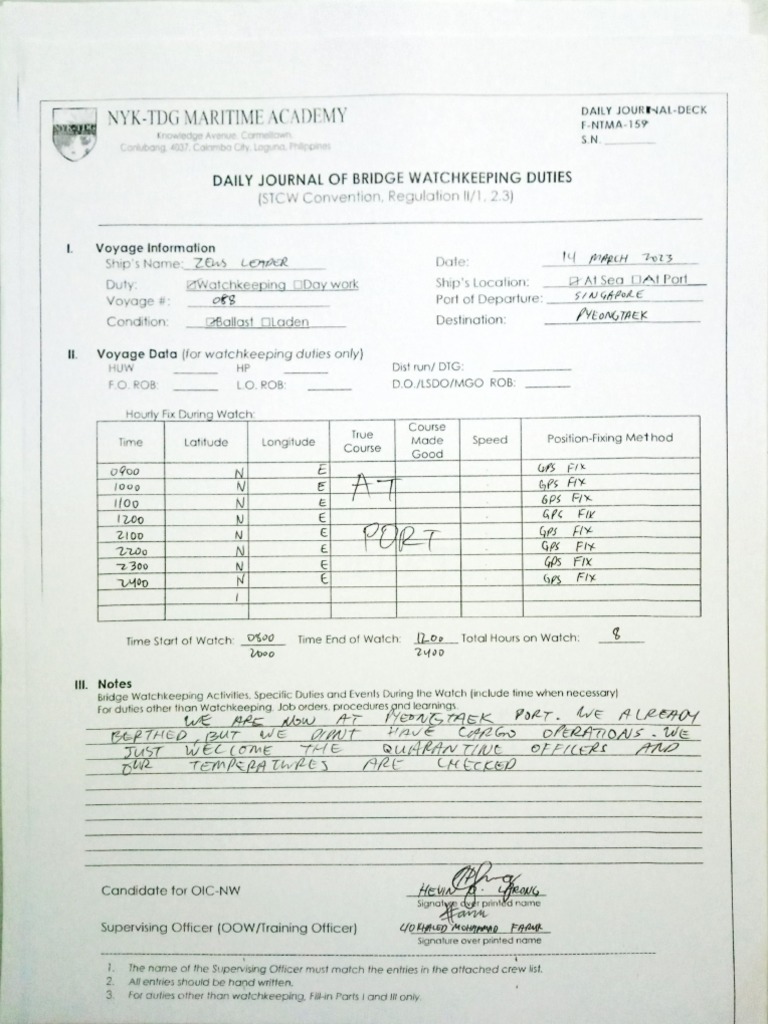 NYK-TDG MARITIME ACADEMY
Knowledge Avenue, Carmeltown,
Canlubang, 4037, Calamba City, Laguna, Philippines
DAILY JOURNAL-DECK
F-NTMA-159
S.N.
DAILY JOURNAL OF BRIDGE WATCHKEEPING DUTIES
(STCW Convention, Regulation II/1, 2.3)
I. Voyage Information
Ship's Name: ZEUS LEADER Date: 14 MARCH 2023
Duty: ☑Watchkeeping ☐Day work Ship's Location: ☑At Sea ☐At Port
Voyage #: 088 Port of Departure: SINGAPORE
Condition: ☑Ballast ☐Laden Destination: PYEONGTAEK
II. Voyage Data (for watchkeeping duties only)
HUW HP Dist run/ DTG:
F.O. ROB: L.O. ROB: D.O./LSDO/MGO ROB:
Hourly Fix During Watch:
Time Latitude Longitude True Course Course Made Good Speed Position-Fixing Method
0900 N E GPS FIX
1000 N E AT GPS FIX
1100 N E GPS FIX
1200 N E GPS FIX
2100 N E PORT GPS FIX
2200 N E GPS FIX
2300 N E GPS FIX
2400 N E GPS FIX
Time Start of Watch: 0800 Time End of Watch: 1200 Total Hours on Watch: 8
2000 2400
III. Notes
Bridge Watchkeeping Activities, Specific Duties and Events During the Watch (include time when necessary)
For duties other than Watchkeeping, Job orders, procedures and learnings.
WE ARE NOW AT PYEONGTAEK PORT. WE ALREADY
BERTHED, BUT WE DIDNT HAVE CARGO OPERATIONS. WE
JUST WELCOME THE QUARANTINE OFFICERS AND
OUR TEMPERATURES ARE CHECKED
Candidate for OIC-NW
Signature over printed name
Supervising Officer (OOW/Training Officer)
Signature over printed name
1. The name of the Supervising Officer must match the entries in the attached crew list.
2. All entries should be hand written.
3. For duties other than watchkeeping, Fill-in Parts I and III only.